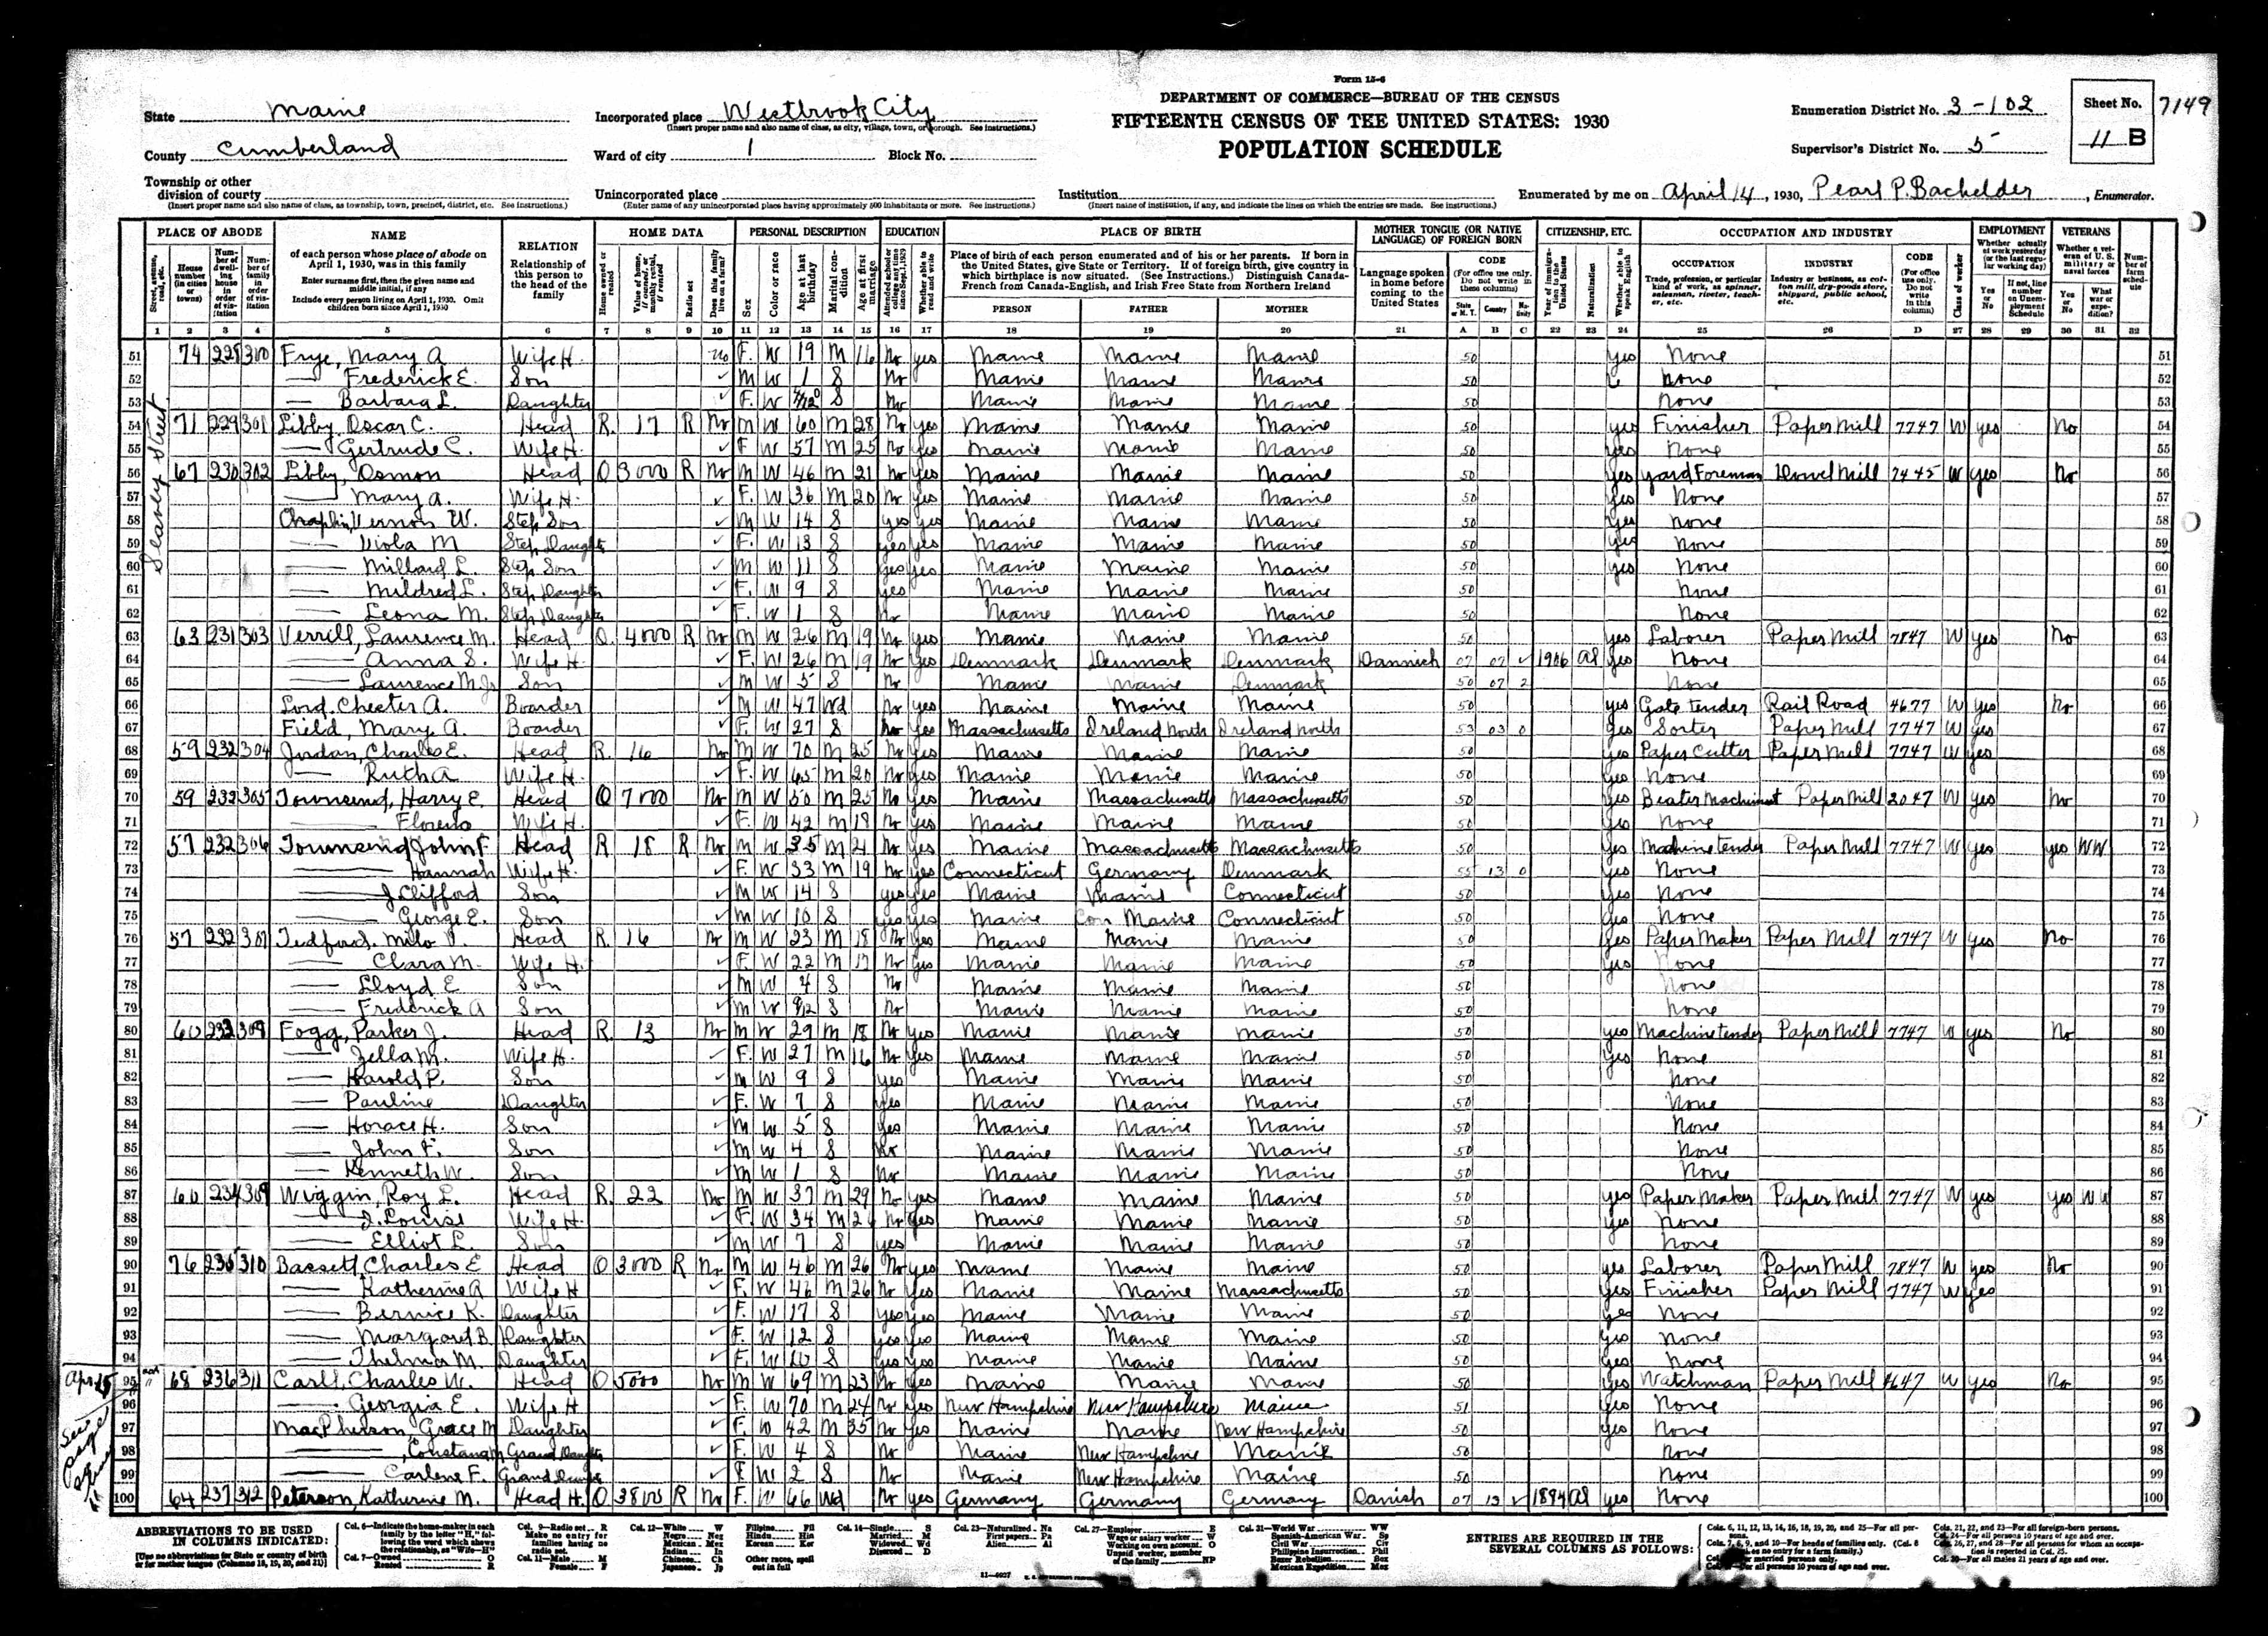 Form 15-6
DEPARTMENT OF COMMERCE—BUREAU OF THE CENSUS
FIFTEENTH CENSUS OF THE UNITED STATES: 1930
POPULATION SCHEDULE
State Maine
Incorporated place Westbrook City
(Insert proper name and also name of class, as city, village, town, or borough. See instructions.)
Enumeration District No. 3-102
Sheet No. 11 B
7149
County Cumberland
Ward of city 1 Block No.
Supervisor's District No. 5
Township or other division of county
(Insert proper name and also name of class, as township, town, precinct, district, etc. See instructions.)
Unincorporated place
(Enter name of any unincorporated place having approximately 500 inhabitants or more. See instructions.)
Institution
(Insert name of institution, if any, and indicate the lines on which the entries are made. See instructions.)
Enumerated by me on April 14, 1930, Pearl P. Bachelder, Enumerator.
PLACE OF ABODE NAME RELATION HOME DATA PERSONAL DESCRIPTION EDUCATION PLACE OF BIRTH MOTHER TONGUE (OR NATIVE LANGUAGE) OF FOREIGN BORN CITIZENSHIP, ETC. OCCUPATION AND INDUSTRY EMPLOYMENT VETERANS
PERSON FATHER MOTHER
1 2 3 4 5 6 7 8 9 10 11 12 13 14 15 16 17 18 19 20 21 A B C 22 23 24 25 26 D 27 28 29 30 31 32
Seavey Street
51 74 228 300 Frye, Mary A Wife H. No F. W 19 M 16 No yes Maine Maine Maine 50 yes None 51
52 — Frederick E. Son M W 1 S No Maine Maine Maine 50 None 52
53 — Barbara L. Daughter F. W S No Maine Maine Maine 50 None 53
54 71 229 301 Libby, Oscar C. Head R. 17 R No M W 60 M 28 No yes Maine Maine Maine 50 yes Finisher Paper Mill 7747 W yes No 54
55 — Gertrude C. Wife H. F W 57 M 25 No yes Maine Maine Maine 50 yes None 55
56 67 230 302 Libby, Osmon Head O 3000 R No M W 46 M 21 No yes Maine Maine Maine 50 yes Yard Foreman Dowel Mill 7445 W yes No 56
57 — Mary A. Wife H. F. W 36 M 20 No yes Maine Maine Maine 50 yes None 57
58 Chaplin, Vernon W. Step Son M W 14 S yes yes Maine Maine Maine 50 yes None 58
59 — Viola M Step Daughter F. W 13 S yes yes Maine Maine Maine 50 yes None 59
60 — Millard L. Step Son M W 11 S yes yes Maine Maine Maine 50 yes None 60
61 — Mildred L. Step Daughter F. W 9 S yes Maine Maine Maine 50 None 61
62 — Leona M. Step Daughter F. W 1 S No Maine Maine Maine 50 None 62
63 63 231 303 Verrill, Laurence M. Head O. 4000 R No M W 26 M 19 No yes Maine Maine Maine 50 yes Laborer Paper Mill 7847 W yes No 63
64 — Anna S. Wife H. F. W 26 M 19 No yes Denmark Denmark Denmark Dannich 07 07 ✓ 1906 Al yes None 64
65 — Laurence M. Jr Son M W 5 S No Maine Maine Denmark 50 07 2 None 65
66 Lord. Chester A. Boarder M W 47 Wd No yes Maine Maine Maine 50 yes Gate tender Rail Road 4677 W yes No 66
67 Field, Mary A. Boarder F. W 27 S No yes Massachusetts Ireland North Ireland North 53 03 0 yes Sorter Paper Mill 7747 W yes 67
68 59 232 304 Jordan, Charles E. Head R. 16 No M W 70 M 25 No yes Maine Maine Maine 50 yes Paper Cutter Paper Mill 7747 W yes 68
69 — Ruth A Wife H. F. W 65 M 20 No yes Maine Maine Maine 50 yes None 69
70 59 232 305 Townsend, Harry E. Head O 7000 No M W 50 M 25 No yes Maine Massachusetts Massachusetts 50 yes Beater Machinest Paper Mill 2047 W yes No 70
71 — Wife H. F. W 42 M 18 No yes Maine Maine Maine 50 yes None 71
72 57 232 306 Townsend John F. Head R 18 R No M W 35 M 21 No yes Maine Massachusetts Massachusetts 50 yes Machine tender Paper Mill 7747 W yes yes WW 72
73 — Hannah Wife H. F. W 33 M 19 No yes Connecticut Germany Denmark 55 13 0 yes None 73
74 — J. Clifford Son M W 14 S yes yes Maine Maine Connecticut 50 yes None 74
75 — George E. Son M W 10 S yes yes Maine Con Maine Connecticut 50 yes None 75
76 57 232 307 Tedford. Milo V. Head R. 16 No M W 23 M 18 No yes Maine Maine Maine 50 yes Paper Maker Paper Mill 7747 W yes No 76
77 — Clara M. Wife H. F. W 22 M 17 No yes Maine Maine Maine 50 yes None 77
78 — Lloyd E Son M W 4 S No Maine Maine Maine 50 None 78
79 — Frederick A Son M W 9/12 S No Maine Maine Maine 50 None 79
80 60 233 308 Fogg, Parker J. Head R. 13 No M W 29 M 18 No yes Maine Maine Maine 50 yes Machine tender Paper Mill 7747 W yes No 80
81 — Zella M. Wife H. F. W 27 M 16 No yes Maine Maine Maine 50 yes None 81
82 — Harold P. Son M W 9 S yes Maine Maine Maine 50 None 82
83 — Pauline Daughter F. W 7 S yes Maine Maine Maine 50 None 83
84 — Horace H. Son M W 5 S yes Maine Maine Maine 50 None 84
85 — John F. Son M W 4 S No Maine Maine Maine 50 None 85
86 — Kenneth W. Son M W 1 S No Maine Maine Maine 50 None 86
87 60 234 309 Wiggin, Roy L. Head R. 22 No M W 37 M 29 No yes Maine Maine Maine 50 yes Paper Maker Paper Mill 7747 W yes yes WW 87
88 — J. Louise Wife H. F. W 34 M 26 No yes Maine Maine Maine 50 yes None 88
89 — Elliot L. Son M W 7 S yes Maine Maine Maine 50 None 89
90 76 235 310 Bassett, Charles E Head O 3000 R No M W 46 M 26 No yes Maine Maine Maine 50 yes Laborer Paper Mill 7847 W yes No 90
91 — Katherine A Wife H F. W 46 M 26 No yes Maine Maine Massachusetts 50 yes Finisher Paper Mill 7747 W yes 91
92 — Bernice K. Daughter F. W 17 S yes yes Maine Maine Maine 50 yes None 92
93 — Margaret B. Daughter F. W 12 S yes yes Maine Maine Maine 50 yes None 93
94 — Thelma M. Daughter F. W 10 S yes yes Maine Maine Maine 50 yes None 94
95 68 236 311 Carll, Charles W. Head O 5000 No M W 69 M 23 No yes Maine Maine Maine 50 yes Watchman Paper Mill 4647 W yes No 95
96 — Georgia E. Wife H F. W 70 M 24 No yes New Hampshire New Hampshire Maine 51 yes None 96
97 MacPherson, Grace M Daughter F. W 42 M 35 No yes Maine Maine New Hampshire 50 yes None 97
98 — Grand Daughter F. W 4 S No Maine New Hampshire Maine 50 None 98
99 — Carlene F. Grand Daughter F W 2 S No Maine New Hampshire Maine 50 None 99
100 64 237 312 Peterson, Katherine M. Head H. O 3800 R No F. W 66 Wd No yes Germany Germany Germany Danish 07 13 ✓ 1894 Al yes None 100
ABBREVIATIONS TO BE USED IN COLUMNS INDICATED:
[Use no abbreviations for State or country of birth or for mother tongue (Columns 18, 19, 20, and 21)]
ENTRIES ARE REQUIRED IN THE SEVERAL COLUMNS AS FOLLOWS: